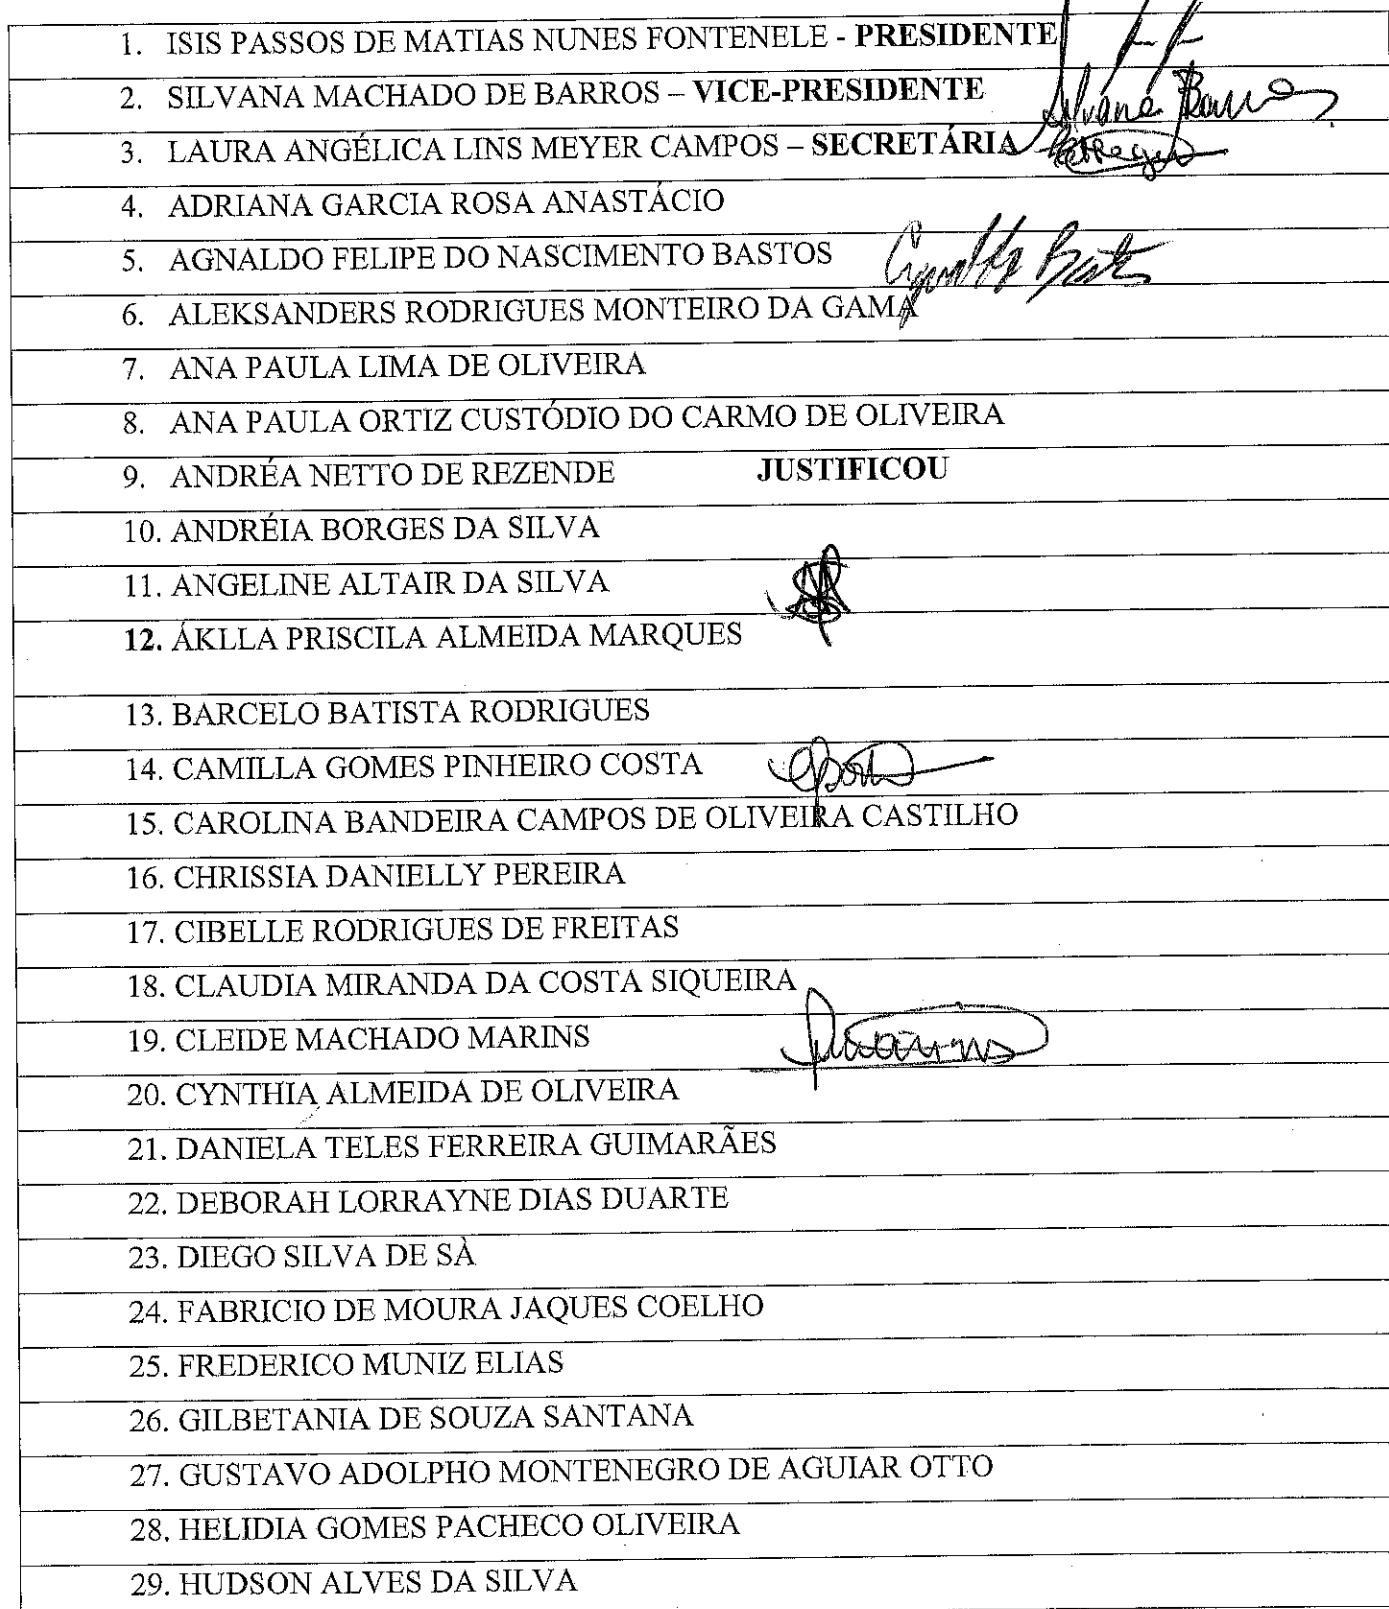 1. ISIS PASSOS DE MATIAS NUNES FONTENELE - PRESIDENTE
2. SILVANA MACHADO DE BARROS – VICE-PRESIDENTE Silvane Barros
3. LAURA ANGÉLICA LINS MEYER CAMPOS – SECRETÁRIA
4. ADRIANA GARCIA ROSA ANASTÁCIO
5. AGNALDO FELIPE DO NASCIMENTO BASTOS
6. ALEKSANDERS RODRIGUES MONTEIRO DA GAMA
7. ANA PAULA LIMA DE OLIVEIRA
8. ANA PAULA ORTIZ CUSTÓDIO DO CARMO DE OLIVEIRA
9. ANDRÉA NETTO DE REZENDE JUSTIFICOU
10. ANDRÉIA BORGES DA SILVA
11. ANGELINE ALTAIR DA SILVA
12. ÁKLLA PRISCILA ALMEIDA MARQUES
13. BARCELO BATISTA RODRIGUES
14. CAMILLA GOMES PINHEIRO COSTA
15. CAROLINA BANDEIRA CAMPOS DE OLIVEIRA CASTILHO
16. CHRISSIA DANIELLY PEREIRA
17. CIBELLE RODRIGUES DE FREITAS
18. CLAUDIA MIRANDA DA COSTA SIQUEIRA
19. CLEIDE MACHADO MARINS
20. CYNTHIA ALMEIDA DE OLIVEIRA
21. DANIELA TELES FERREIRA GUIMARÃES
22. DEBORAH LORRAYNE DIAS DUARTE
23. DIEGO SILVA DE SÀ
24. FABRICIO DE MOURA JAQUES COELHO
25. FREDERICO MUNIZ ELIAS
26. GILBETANIA DE SOUZA SANTANA
27. GUSTAVO ADOLPHO MONTENEGRO DE AGUIAR OTTO
28. HELIDIA GOMES PACHECO OLIVEIRA
29. HUDSON ALVES DA SILVA